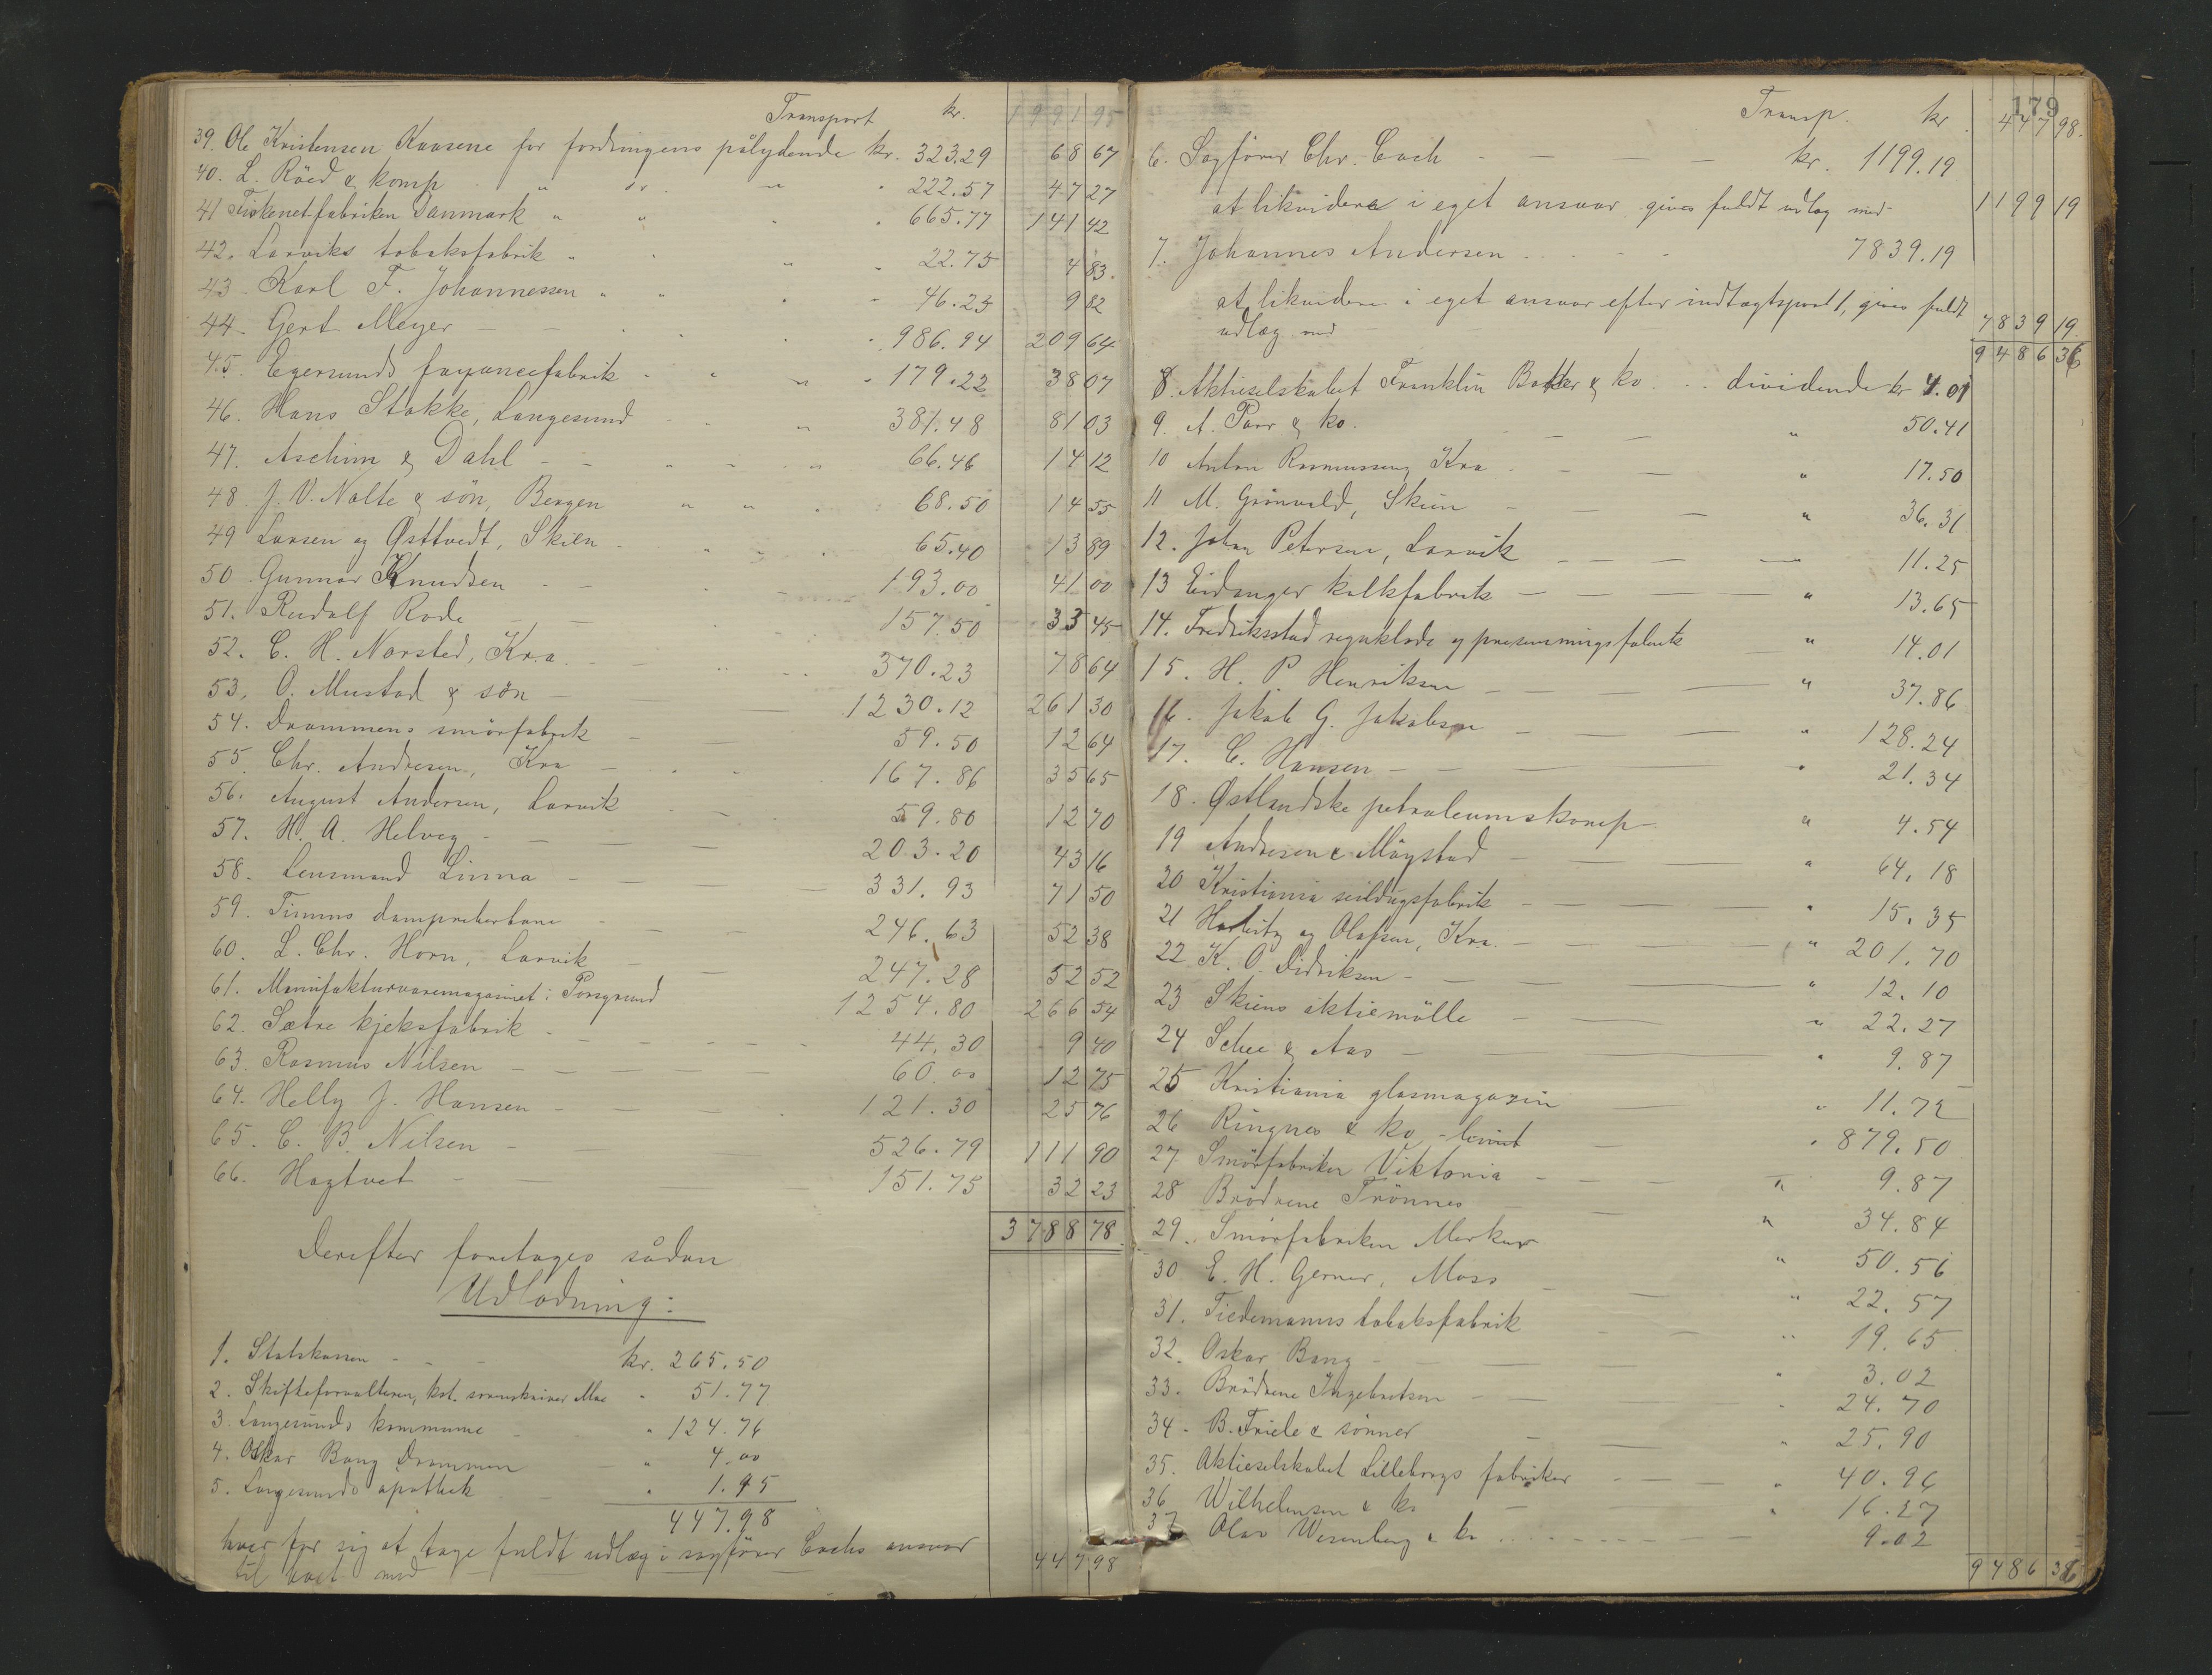 Transport kr. 1991 95
39. Ole Kristensen Kaasene for fordringens pålydende kr. 323.29 68 67
40. L. Röed & komp " " " 222.57 47 27
41 Fiskenetfabriken Danmark " " " 665.77 141 42
42. Larviks tobaksfabrik " " " 22.75 4 83.
43. Karl F. Johannessen " " " 46.25 9 82
44. Gert Meyer 986.94 209 64
45. Egersunds fayancefabrik 179.22 38 07
46. Hans Stokke, Langesund 381.48 81 03
47. Aschim & Dahl 66.46 14 12
48. J. V. Nolte & søn, Bergen 68.50 14 55
49 Larsen og Østtvedt, Skien 65.40 13 89
50. Gunnar Knudsen 193.00 41 00
51. Rudolf Rode 157.50 33 45
52. C. H. Norsted, Kra. 370.23 78 64
53. O. Mustad & søn 1230.12 261 30
54. Drammens smörfabrik 59.50 12 64
55. Chr. Andresen, Kra 167.86 35 65
56. August Andersen, Larvik 59.80 12 70
57. H. A. Helveg 203.20 43 16
58. Lensmand Linna 331.93 71 50
59. Timms dampreberbane 246.63 52 38
60. L. Chr. Horn, Larvik 247.28 52 52
61. Manufakturvaremagasinet i Porsgrund 1254.80 266 54
62. Sætre kjeksfabrik 44.30 9 40
63. Rasmus Nilsen 60.00 12 75
64. Helly J. Hansen 121.30 25 76
65. C. B. Nilsen 526.79 111 90
66. Hagtvet 151.75 32 23
3788 78.
Derefter foretages sådan
Udlodning:
1. Statskassen kr. 265.50
2. Skifteforvalteren, kst. sorenskriver Moe " 51.77
3. Langesunds kommune " 124.76
4. Oskar Bang Drammen " 4.00
5. Langesunds apothek " 1.95
447.98
hver for sig at tage fuldt udlæg i sagfører Cochs ansvar
til boet med 447 98
179
Transp. kr. 447 98.
6. Sagfører Chr. Coch kr. 1199.19
at likvidere i eget ansvar gives fuldt udlæg med 1199 19
7. Johannes Andersen 7839.19
at likvidere i eget ansvar efter indtægtspost 1, gives fuldt
udlæg med 7839 19.
9486 36
8. Aktieselskabet Franklin & ko. dividende kr 4.01
9. A. Parr & ko. " 50.41
10 Anton Rasmussen, Kra " 17.50
11 M. Grönvold, Skien " 36.31
12. Johan Petersen, Larvik 11.25
13 Eidanger kalkfabrik " 13.65
14. Fredriksstad regnklæde og presenningsfabrik " 14.01
15. H. P Henriksen " 37.86
16. Jakob G. Jakobsen " 128.24
17. C. Hansen " 21.34
18. Østlandske petroleumskomp " 4.54
19 Andresen & Mögstad " 64.18
20 Kristiania seildugsfabrik " 15.35
21 og Olafsen, Kra. " 201.70
22 K. O. Didriksen " 12.10
23 Skiens aktiemølle " 22.27
24 Schee & Aas " 9.87
25 Kristiania glasmagazin " 11.72
26 Ringnes & ko " 879.50
27 Smörfabriken Viktoria " 9.87
28 Brödrene Trönnes " 34.84
29. Smörfabriken Merkur " 50.56
30 E. H. Gerner, Moss " 22.57
31. Tiedemanns tobaksfabrik " 19.65
32. Oskar Bang " 3.02
33. Brödrene Ingebretsen " 24.70
34. B. Friele & sønner " 25.90
35. Aktieselskabet Lilleborgs fabriker " 40.96
36 Wilhelmsen & ko " 16.27
37 Olav Wesenberg & ko 9.02
9486 36